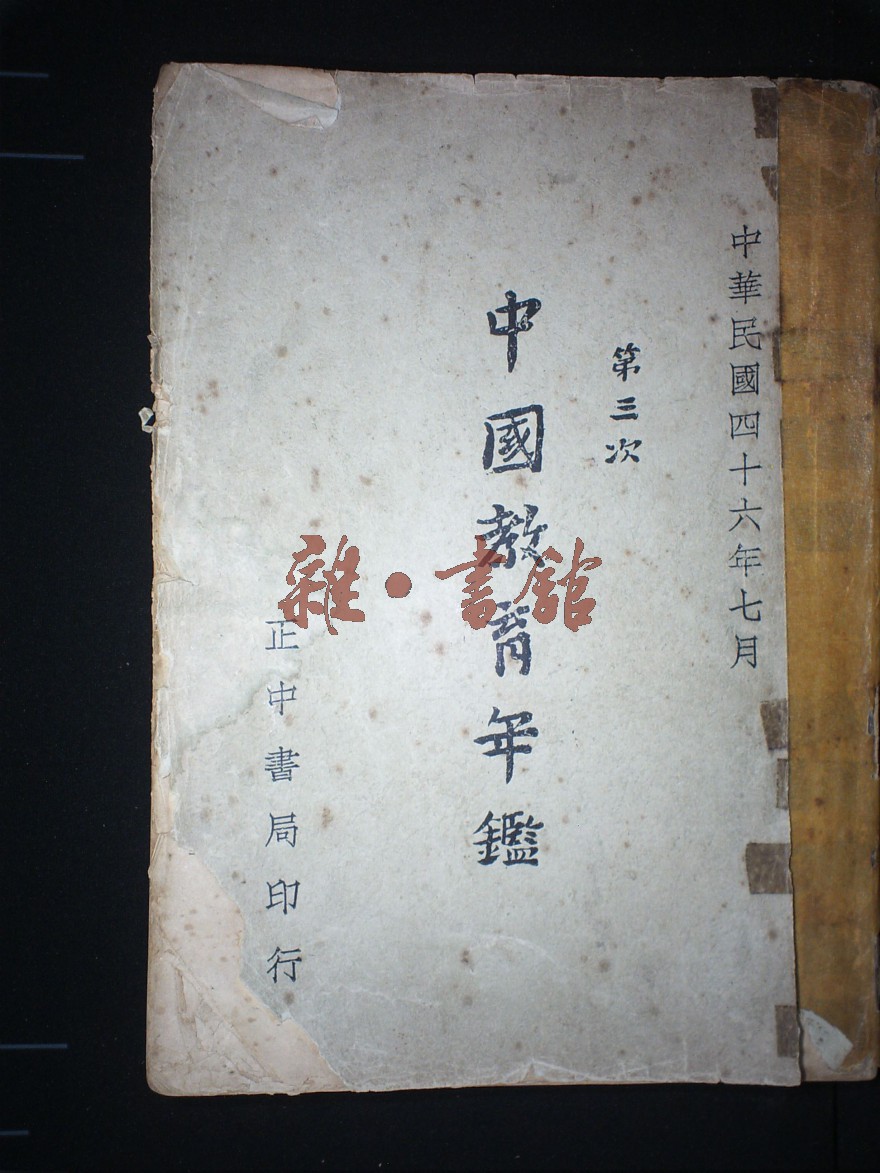 中華民國四十六年七月
第三次
中國教育年鑑
正中書局印行
雜·書館